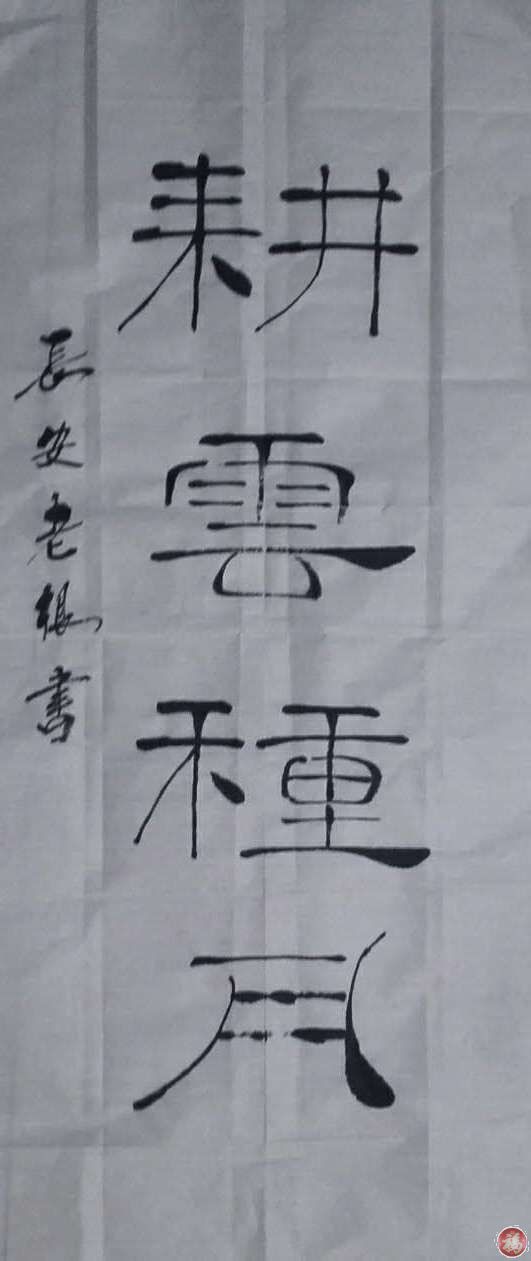 耕雲種月
長安老書
福